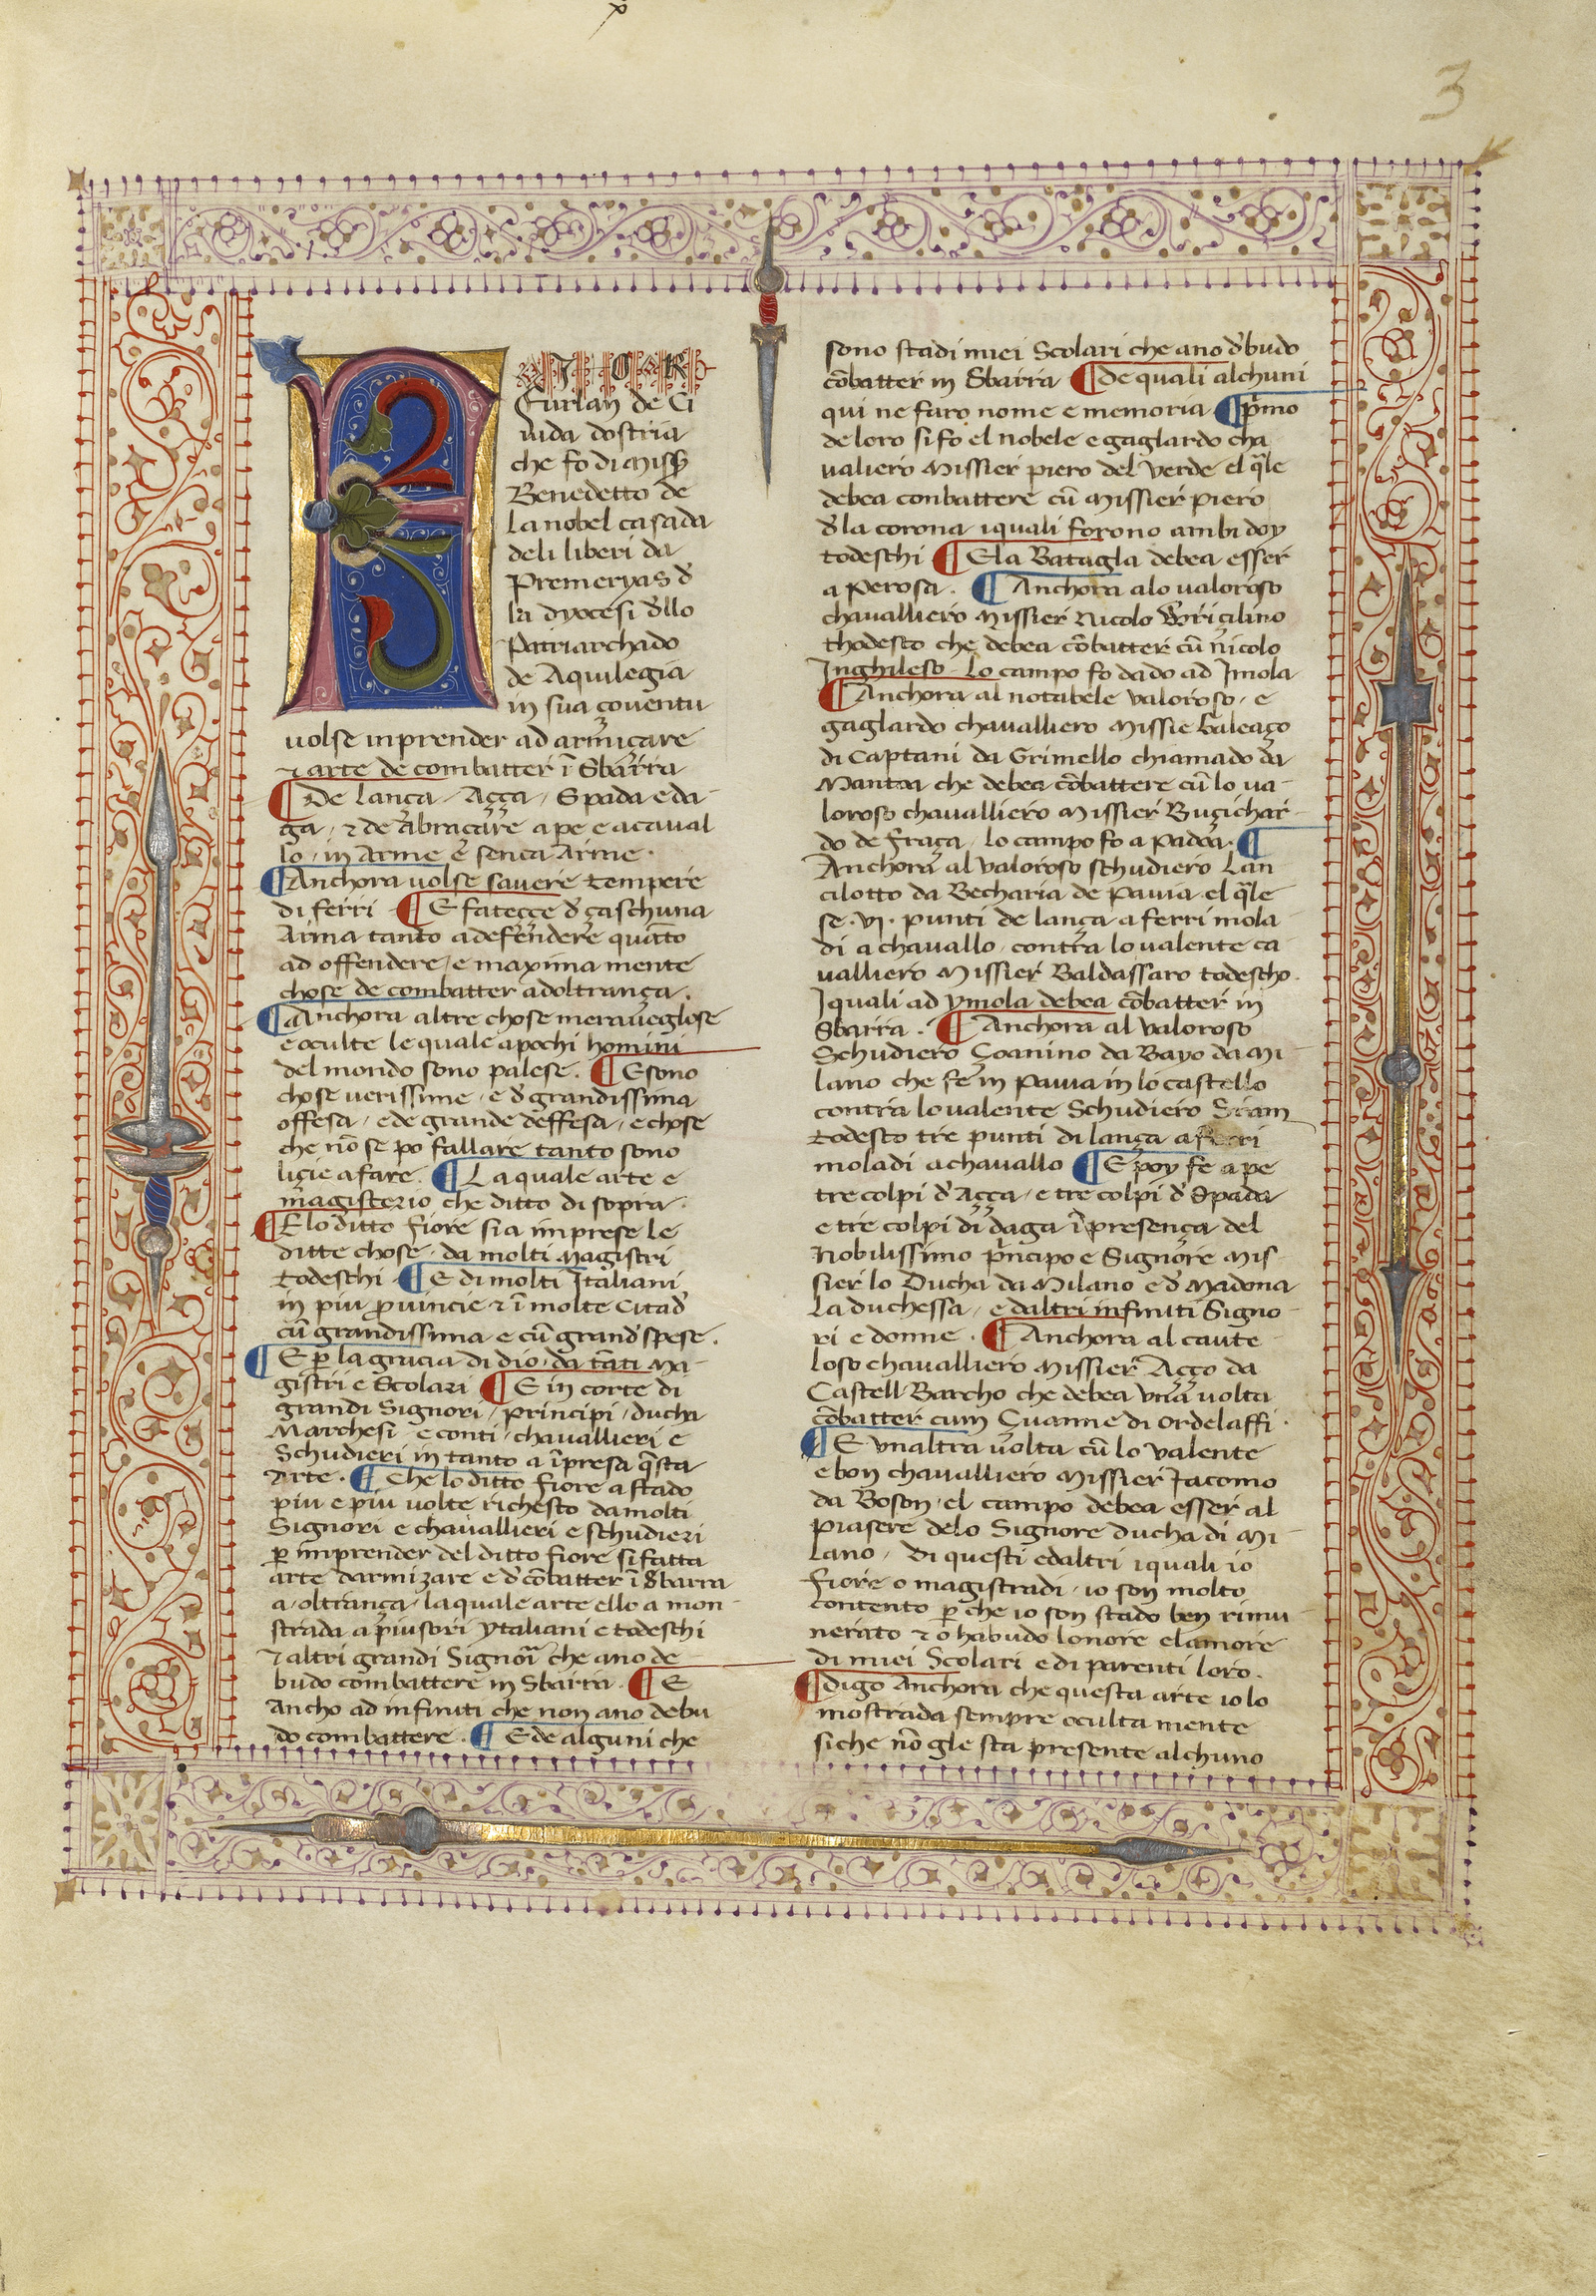 3
FIOR
Furlan de Ci
uida dostria
che fo di Miss͂
Benedetto de
la nobel casada
deli liberi da
Premeryas d̄
la dyocesi d̄llo
Patriarchado
de Aquilegia
in sua coventu
uolse inprender ad armiçare
⁊ arte de combatter ī Sbarra
¶ De lança / Açça / Spada e da-
ga / ⁊ de abraçare a pe e a caual
lo / in Arme e senca Arme.
¶ Anchora uolse savere tempere
di ferri ¶ E fateçce d̄ çaschuna
Arma tanto a defendere quāto
ad offendere / e maximamente
chose de combatter ad oltrança.
¶ Anchora altre chose meraveglose
e oculte le quale a pochi homini
del mondo sono palese. ¶ E sono
chose verissime / e d̄ grandissima
offesa / e de grande deffesa / e chose
che nō se po fallare tanto sono
liçie a fare. ¶ La quale arte e
magisterio che ditto di sopra.
¶ E lo ditto fiore sia imprese le
ditte chose / da molti Magistri
todeschi. ¶ E di molti Italiani
in piu ꝓuincie ⁊ ī molte Citad̄
cū grandissima e cū grand̄ spese.
¶ E ꝑ la gracia di dio / da tāti Ma-
gistri e Scolari ¶ E in corte di
grandi Signori / Principi / ducha
Marchesi e conti / chavallieri e
Schudieri in tanto a īpresa q̄sta
Arte. ¶ Che lo ditto fiore a stado
piu e piu uolte richesto da molti
Signori e chavallieri e schudieri
ꝑ imprender del ditto fiore si fatta
arte darmizare e d̄ cōbatter ī Sbarra
a / oltrança / la quale arte ello a mon-
strada a piusori ytaliani e todeschi
⁊ altri grandi Signori che ano de-
budo combattere in Sbarra. ¶ E
Ancho ad infiniti che non ano debu
do combattere. ¶ E de alguni che
sono stadi miei Scolari che ano d̄budo
cōbatter in Sbarra ¶ De quali alchuni
qui ne faro nome e memoria ¶ Primo
de loro si fo el nobele e gaglardo cha
ualiero Missier piero del verde el q̄le
debea conbattere cū Missier piero
d̄la corona iquali forono ambi doy
todeschi ¶ E la Batagla debea esser
a Perosa. ¶ Anchora alo valoroso
chavalliero Missier Nicolo Voriçilino
thodesco che debea cōbatter cū nicolo
Inghileso. Lo campo fo dado ad Imola
¶ Anchora al notabele valoroso / e
gaglardo chavalliero Missie Galeaço
di Captani da Grimello chiamado da
Mantoa che debea cōbattere cū lo va-
loroso chavalliero Missier Buçichar-
do de fraça / lo campo fo a Padoa. ¶
Anchora al valoroso schudiero Lan
cilotto da Becharia de Pauia el q̄le
fe .vj. punti de lança a ferri mola
di a chavallo / contra lo valente ca
valliero Missier Baldassaro todescho.
Iquali ad ymola debea cōbatter in
Sbarra. ¶ Anchora al valoroso
Schudiero Çoanino da Bayo da Mi-
lano che fe in Pauia in lo castello
contra lo valente Schudiero
todesco tre punti di lança a ferri
moladi a chavallo ¶ E poy fe a pe
tre colpi d̄ Açça / e tre colpi d̄ Spada
e tre colpi di daga ī presença del
Nobilissimo principo e Signore Mis-
sier lo Ducha da Milano e d̄ Madona
la duchessa / e daltri infiniti Signo-
ri e donne. ¶ Anchora al caute
loso chavalliero Missier Açço da
Castell Barcho che debea una volta
cōbatter cum Çuanne di Ordelaffi.
¶ E vnaltra uolta cū lo valente
e bon chavalliero Missier Iacomo
da Boson / el campo debea esser al
piasere delo Signore ducha di Mi-
lano / Di questi e daltri iquali io
fiore o magistradi / io son molto
contento ꝑ che io son stado ben rimu
nerato ⁊ o habudo lonore e lamore
di miei Scolari e di parenti loro.
¶ Digo Anchora che questa arte io lo
mostrada sempre oculta mente
siche nō gle sta presente alchuno